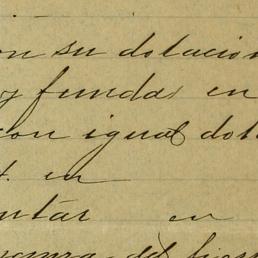 on su dotacion
y funda en
con igual dot
en
ntár en